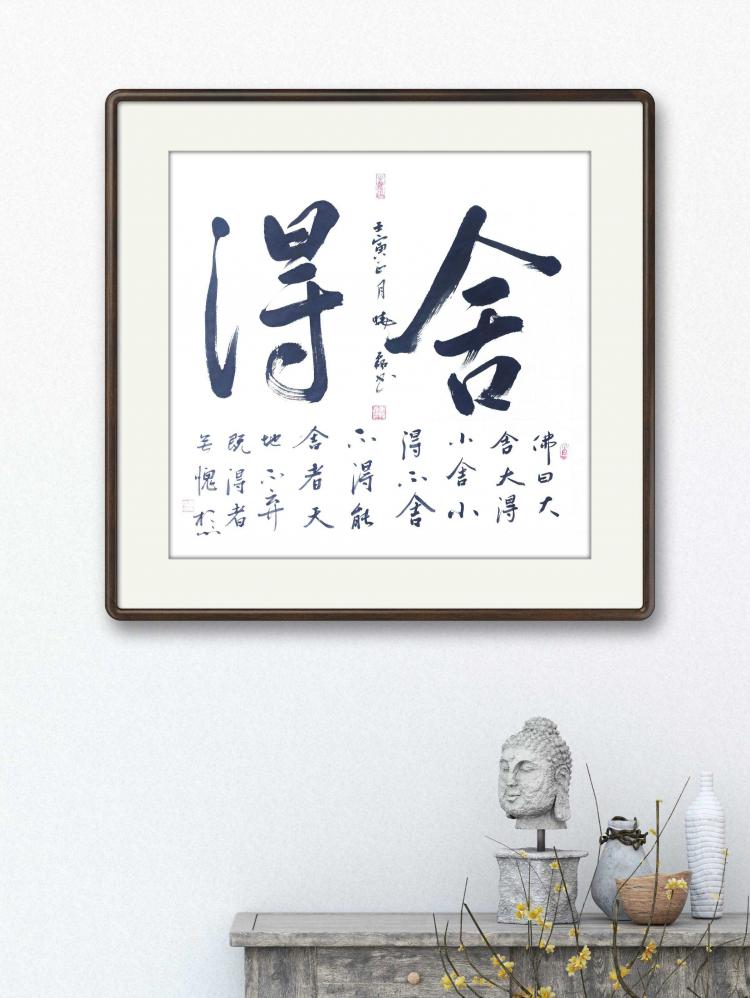 舍
得
壬寅正月
佛曰大
舍大得
小舍小
得不舍
不得能
舍者天
地不弃
既得者
無愧於心